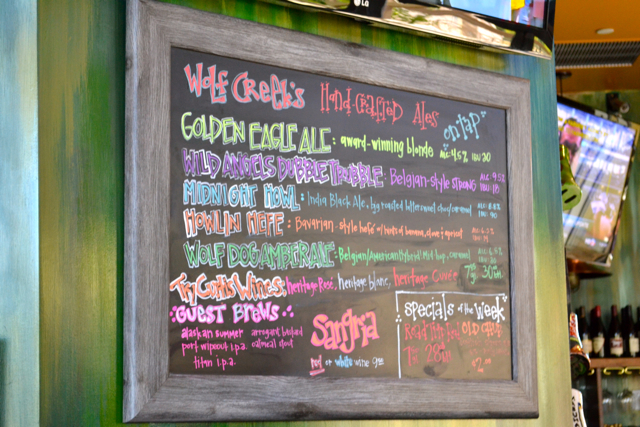 LG
Wolf Creek's Hand-Crafted Ales on tap
GOLDEN EAGLE ALE: award-winning blonde ALC 4.5% IBU 20
WILD ANGELS DUBBLE TRUBBLE: Belgian-style STRONG ALC 9.5% IBU 18
MIDNIGHT HOWL: India Black Ale, big roasted bittersweet IBU 90
HOWLIN HEFE: Bavarian-style hefe w/ hints of banana, clove & apricot
WOLF DOG AMBER ALE: Belgian/American hybrid! caramel
Wines: heritage Rosé, heritage blanc, heritage Cuvée,
GUEST BREWS
alaskan summer
port wipeout i.p.a. oatmeal stout
titan i.p.a.
Sangria
red or white wine
specials of the Week